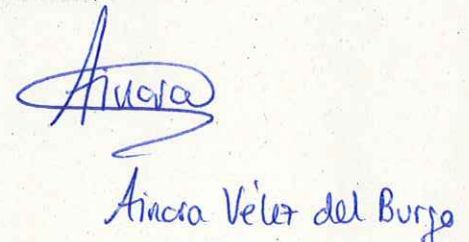 Ainara
Ainara Vélez del Burgo